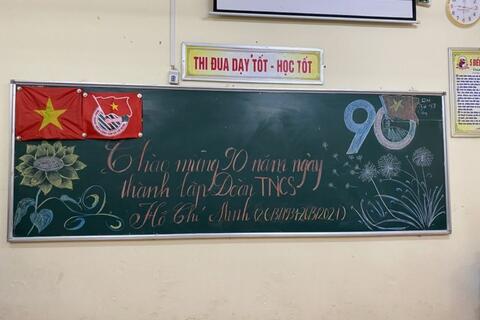 THI ĐUA DẠY TỐT - HỌC TỐT
5 ĐIỀU
90
Chào mừng 90 năm ngày
thành lập Đoàn TNCS
Hồ Chí Minh (26/3/1931-26/3/2021)